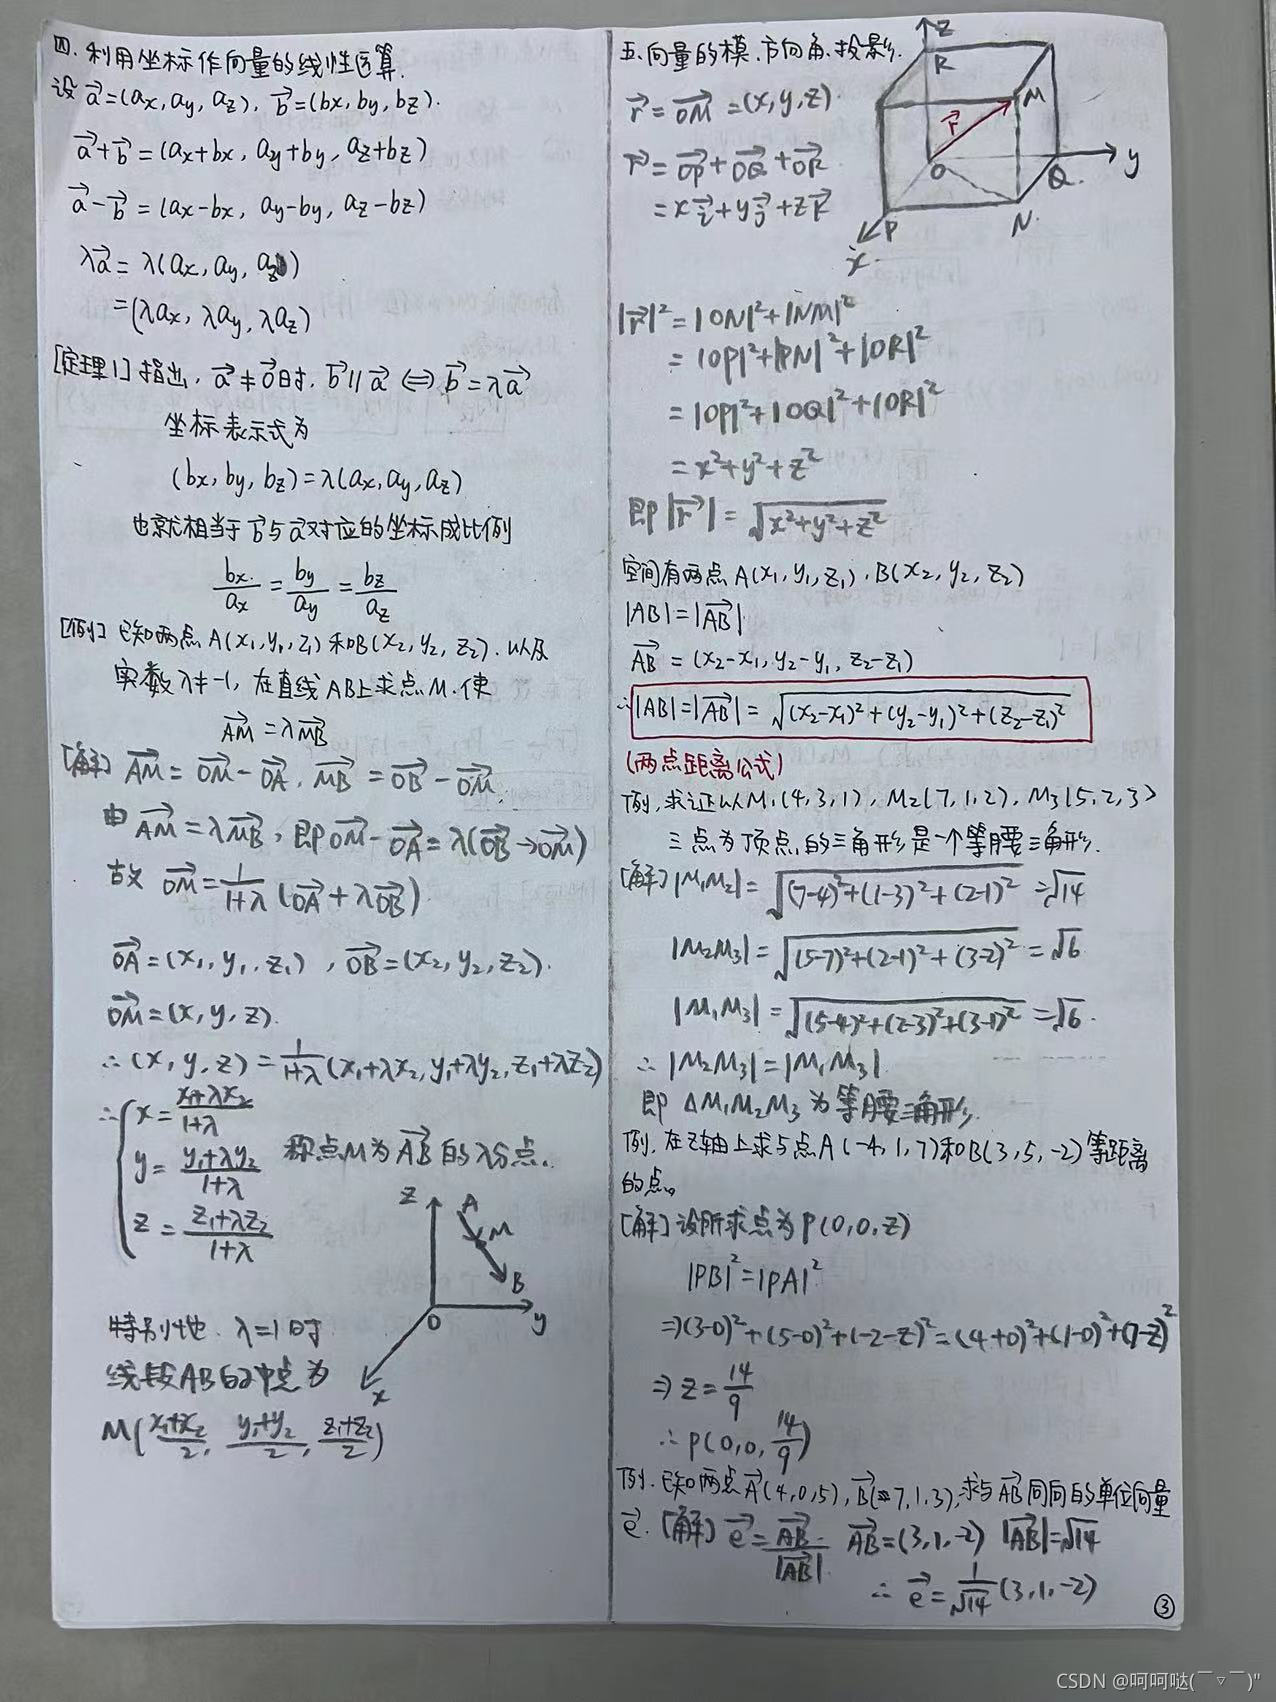 四.利用坐标作向量的线性运算.
设 a⃗=(ax,ay,az), b⃗=(bx,by,bz).
a⃗+b⃗=(ax+bx, ay+by, az+bz)
a⃗-b⃗=(ax-bx, ay-by, az-bz)
λa⃗=λ(ax,ay,az)
=(λax,λay,λaz)
[定理1]指出, a⃗≠0⃗时, b⃗∥a⃗ ⇔ b⃗=λa⃗
坐标表示式为
(bx,by,bz)=λ(ax,ay,az)
也就相当于b⃗与a⃗对应的坐标成比例
bx/ax=by/ay=bz/az
[例]已知两点A(x₁,y₁,z₁)和B(x₂,y₂,z₂).以及
实数λ≠-1,在直线AB上求点M.使
AM⃗=λMB⃗
[解] AM⃗=OM⃗-OA⃗, MB⃗=OB⃗-OM⃗.
由AM⃗=λMB⃗,即OM⃗-OA⃗=λ(OB⃗-OM⃗)
故 OM⃗=1/(1+λ)(OA⃗+λOB⃗)
OA⃗=(x₁,y₁,z₁), OB⃗=(x₂,y₂,z₂).
OM⃗=(x,y,z).
∴(x,y,z)=1/(1+λ)(x₁+λx₂,y₁+λy₂,z₁+λz₂)
∴{x=(x₁+λx₂)/(1+λ)
y=(y₁+λy₂)/(1+λ) 称点M为AB⃗的λ分点.
z=(z₁+λz₂)/(1+λ)
z A M B O y x
特别地.λ=1时
线段AB的中点为
M((x₁+x₂)/2,(y₁+y₂)/2,(z₁+z₂)/2)
五.向量的模.方向角.投影.
r⃗=OM⃗=(x,y,z)
r⃗=OP⃗+OQ⃗+OR⃗
=xi⃗+yj⃗+zk⃗
z R M r⃗ O y Q P N x
|r⃗|²=|ON|²+|NM|²
=|OP|²+|PN|²+|OR|²
=|OP|²+|OQ|²+|OR|²
=x²+y²+z²
即|r⃗|=√(x²+y²+z²)
空间有两点A(x₁,y₁,z₁).B(x₂,y₂,z₂)
|AB|=|AB⃗|
AB⃗=(x₂-x₁,y₂-y₁,z₂-z₁)
∴|AB|=|AB⃗|=√((x₂-x₁)²+(y₂-y₁)²+(z₂-z₁)²)
(两点距离公式)
例.求证以M₁(4,3,1),M₂(7,1,2),M₃(5,2,3)
三点为顶点的三角形是一个等腰三角形.
[解]|M₁M₂|=√((7-4)²+(1-3)²+(2-1)²)=√14
|M₂M₃|=√((5-7)²+(2-1)²+(3-2)²)=√6
|M₁M₃|=√((5-4)²+(2-3)²+(3-1)²)=√6.
∴|M₂M₃|=|M₁M₃|
即△M₁M₂M₃为等腰三角形.
例.在z轴上求与点A(-4,1,7)和B(3,5,-2)等距离
的点。
[解]设所求点为P(0,0,z)
|PB|²=|PA|²
⇒(3-0)²+(5-0)²+(-2-z)²=(4+0)²+(1-0)²+(7-z)²
⇒z=14/9
∴P(0,0,14/9)
例.已知两点A⃗(4,0,5),B⃗(7,1,3),求与AB⃗同向的单位向量
e⃗.[解]e⃗=AB⃗/|AB⃗|. AB⃗=(3,1,-2) |AB⃗|=√14
∴e⃗=1/√14(3,1,-2)
③
CSDN @呵呵哒(￣▽￣)"